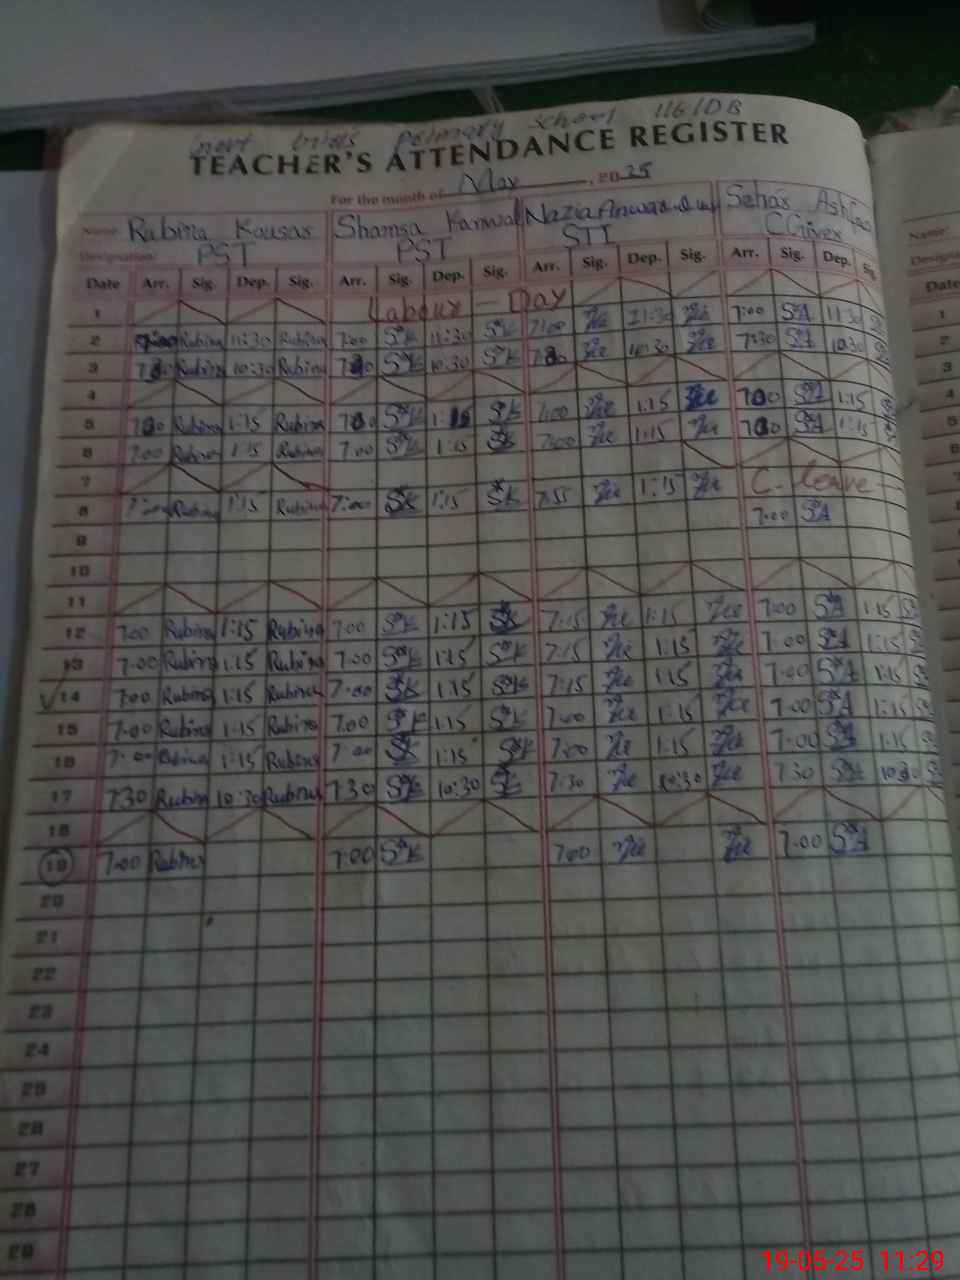 Govt Girls Primary School 116/DB
TEACHER'S ATTENDANCE REGISTER
For the month of May, 2025
Name: Rubina Kousar Shamsa Kanwal Nazia Anwar Sehar Ashfaq
Designation: PST PST STI C Giver
Date Arr. Sig. Dep. Sig. Arr. Sig. Dep. Sig. Arr. Sig. Dep. Sig. Arr. Sig. Dep. Sig.
1 Labour - Day
2 7:00 Rubina 11:30 Rubina 7:00 SK 11:30 SK 7:00 11:30 7:00 SA 11:30
3 Rubina 10:30 Rubina SK 10:30 SK 10:30 7:30 SA 10:30
4
5 Rubina 1:15 Rubina SK SK 7:00 1:15 SA 1:15
6 7:00 Rubina 1:15 Rubina 7:00 SK 1:15 SK 7:00 1:15 SA 1:15
7 C. leave
8 7:00 Rubina 1:15 Rubina 7:00 SK 1:15 SK 7:55 1:15 7:00 SA
9
10
11
12 7:00 Rubina 1:15 Rubina 7:00 SK 1:15 SK 7:15 1:15 7:00 SA 1:15
13 7:00 Rubina 1:15 Rubina 7:00 SK 1:15 SK 7:15 1:15 7:00 SA 1:15
14 7:00 Rubina 1:15 Rubina 7:00 SK 1:15 SK 7:15 1:15 7:00 SA 1:15
15 7:00 Rubina 1:15 Rubina 7:00 SK 1:15 SK 7:00 1:15 7:00 SA 1:15
16 7:00 Rubina 1:15 Rubina 7:00 SK 1:15 SK 7:00 1:15 7:00 SA 1:15
17 7:30 Rubina 10:30 Rubina 7:30 SK 10:30 SK 7:30 10:30 7:30 SA 10:30
18
19 7:00 Rubina 7:00 SK 7:00 7:00 SA
20
21
22
23
24
25
26
27
28
29
Name:
Date
1
2
3
4
5
6
19-05-25 11:29